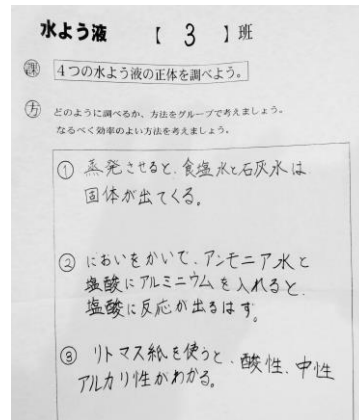 水よう液 【 3 】班
課 4つの水よう液の正体を調べよう。
方 どのように調べるか、方法をグループで考えましょう。
なるべく効率のよい方法を考えましょう。
① 蒸発させると、食塩水と石灰水は
固体が出てくる。
② においをかいで、アンモニア水と
塩酸にアルミニウムを入れると、
塩酸に反応が出るはず。
③ リトマス紙を使うと、酸性、中性
アルカリ性がわかる。